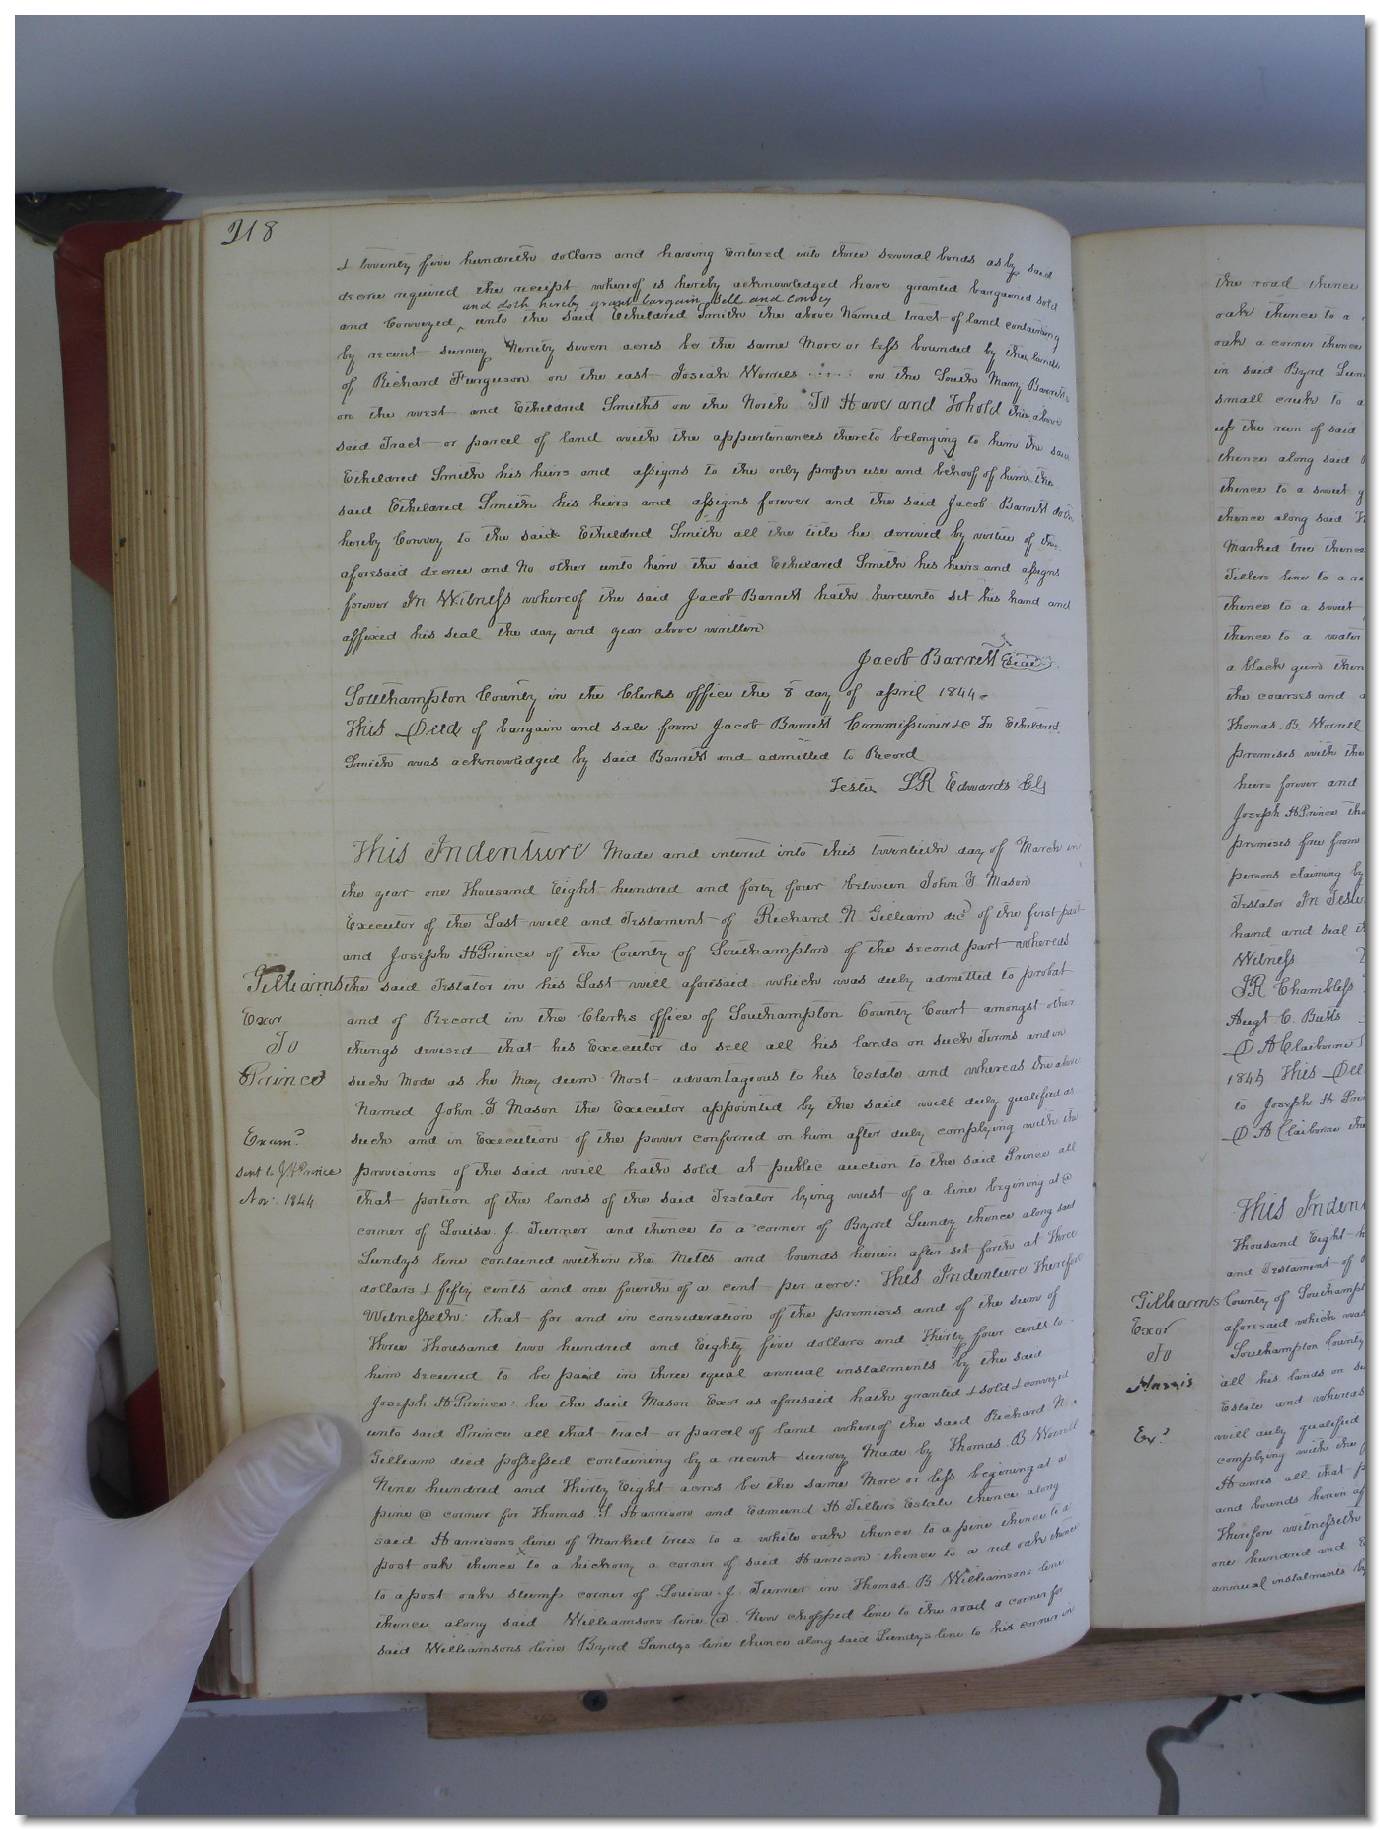 218
& twenty five hundredth dollars and having Entered into three several bonds as by said
decree required the receipt whereof is hereby acknowledged have granted bargained sold
and doth hereby grant bargain Sell and convey
and Conveyed unto the said Etheldred Smith the above Named tract of land containing
by recent survey Ninety seven acres be the same More or less bounded by the lands
of Richard Ferguson on the east Josiah Worrels on the South Mary Barretts
on the west and Etheldred Smiths on the North To Have and To hold the above
said Tract or parcel of land with the appurtenances thereto belonging to him the said
Etheldred Smith his heirs and assigns to the only proper use and behoof of him the
said Etheldred Smith his heirs and assigns forever and the said Jacob Barrett doth
hereby Convey to the said Etheldred Smith all the title he derived by virtue of the
aforesaid decree and No other unto him the said Etheldred Smith his heirs and assigns
forever In Witness whereof the said Jacob Barrett hath hereunto set his hand and
affixed his seal the day and year above written
Jacob Barrett Seal
Southampton County in the Clerks office the 8 day of april 1844
This Deed of bargain and sale from Jacob Barrett Commissioner &c To Etheldred
Smith was acknowledged by said Barrett and admitted to Record
Teste LR Edwards Clk
This Indenture Made and entered into this twentieth day of March in
the year one Thousand Eight hundred and forty four between John Y Mason
Executor of the Last will and Testament of Richard N. Gilliam decd of the first part
and Joseph H Prince of the County of Southampton of the second part whereas
Gilliams the said Testator in his Last will aforesaid which was duly admitted to probat
Exor and of Record in the Clerks office of Southampton County Court amongst other
To things devised that his Executor do sell all his lands on such Terms and in
Prince such Mode as he May deem Most advantageous to his Estate and whereas the above
Named John Y Mason the Executor appointed by the said will duly qualified as
Examd such and in Execution of the power conferred on him after duly complying with the
sent to J H Prince provisions of the said will hath sold at public auction to the said Prince all
Nov: 1844 that portion of the lands of the said Testator lying west of a line begining at @
corner of Louisa J. Turner and thence to a corner of Byrd Lundy thence along said
Lundys line contained within the Metes and bounds herein after set forth at Three
dollars & fifty cents and one fourth of a cent per acre: This Indenture Therefore
Witnesseth: that for and in consideration of the premises and of the sum of
Three Thousand two hundred and Eighty five dollars and Thirty four cents to
him secured to be paid in three equal annual instalments by the said
Joseph H Prince: he the said Mason Exor as aforesaid hath granted & sold & conveyed
unto said Prince all that tract or parcel of land whereof the said Richard N.
Gilliam died possessed containing by a recent survey Made by Thomas B Worrell
Nine hundred and Thirty Eight acres be the same More or less begining at a
pine @ corner for Thomas J Harrison and Edmund H Tillers Estate thence along
said Harrisons line of Marked trees to a white oak thence to a pine thence to a
post oak thence to a hickory a corner of said Harrison thence to a red oak thence
to a post oak stump corner of Louisa J. Turner in Thomas B Williamsons line
thence along said Williamsons line @ New chopped line to the road a corner for
said Williamsons line Byrd Lundys line thence along said Lundys line to his corner in
the road thence
oak thence to a
oak a corner thence
in said Byrd Lun
small creek to a
up the run of said
thence along said
thence to a sweet g
thence along said H
Marked tree thence
Tillers line to a
thence to a sweet
thence to a water
a black gum then
the courses and
Thomas B Worrell
premises with the
heirs forever and
Joseph H Prince the
premises free from
persons claiming by
Testator In Testi
hand and seal
Witness
JR Chambless
Augt C. Butts
D A Claiborne
1844 This Dee
to Joseph H Prin
D A Claiborne the
This Indent
Thousand Eight h
and Testament of
Gilliams County of Southampt
Exor aforesaid which was
To Southampton County
Harris all his lands on su
Estate and whereas
Exd will duly qualified
complying with the
Harris all that p
and bounds herein af
Therefore witnesseth
one hundred and E
annual instalments by